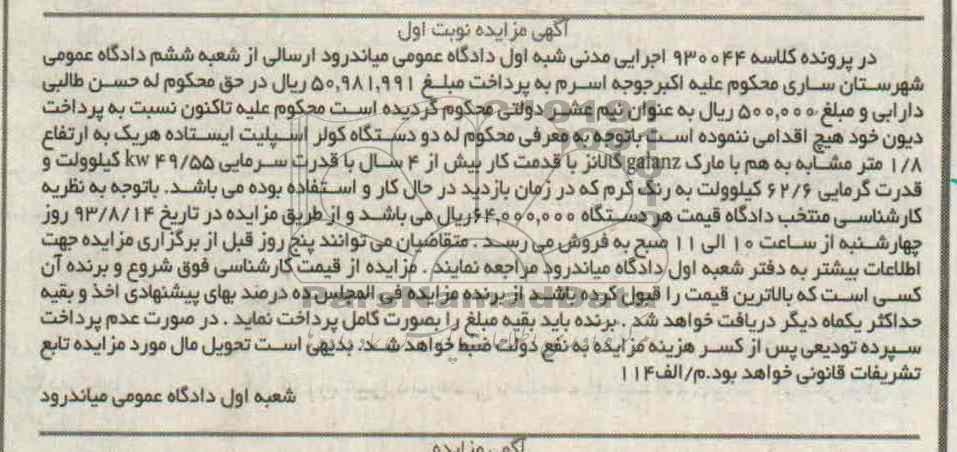 آگهی مزایده نوبت اول
در پرونده کلاسه ۹۳۰۰۴۴ اجرایی مدنی شبه اول دادگاه عمومی میاندرود ارسالی از شعبه ششم دادگاه عمومی
شهرستان ساری محکوم علیه اکبرجوجه اسرم به پرداخت مبلغ ۵۰,۹۸۱,۹۹۱ ریال در حق محکوم له حسن طالبی
دارابی و مبلغ ۵۰۰,۰۰۰ ریال به عنوان نیم عشر دولتی محکوم گردیده است محکوم علیه تاکنون نسبت به پرداخت
دیون خود هیچ اقدامی ننموده است باتوجه به معرفی محکوم له دو دستگاه کولر اسپلیت ایستاده هریک به ارتفاع
۱/۸ متر مشابه به هم با مارک galanz گالانز با قدمت کار بیش از ۴ سال با قدرت سرمایی ۴۹/۵۵ kw کیلوولت و
قدرت گرمایی ۶۲/۶ کیلوولت به رنگ کرم که در زمان بازدید در حال کار و استفاده بوده می باشد. باتوجه به نظریه
کارشناسی منتخب دادگاه قیمت هر دستگاه ۶۴,۰۰۰,۰۰۰ریال می باشد و از طریق مزایده در تاریخ ۹۳/۸/۱۴ روز
چهارشنبه از ساعت ۱۰ الی ۱۱ صبح به فروش می رسد . متقاضیان می توانند پنج روز قبل از برگزاری مزایده جهت
اطلاعات بیشتر به دفتر شعبه اول دادگاه میاندرود مراجعه نمایند . مزایده از قیمت کارشناسی فوق شروع و برنده آن
کسی است که بالاترین قیمت را قبول کرده باشد از برنده مزایده فی المجلس ده درصد بهای پیشنهادی اخذ و بقیه
حداکثر یکماه دیگر دریافت خواهد شد . برنده باید بقیه مبلغ را بصورت کامل پرداخت نماید . در صورت عدم پرداخت
سپرده تودیعی پس از کسر هزینه مزایده به نفع دولت ضبط خواهد شد. بدیهی است تحویل مال مورد مزایده تابع
تشریفات قانونی خواهد بود.م/الف۱۱۴
شعبه اول دادگاه عمومی میاندرود
آگهی مزایده